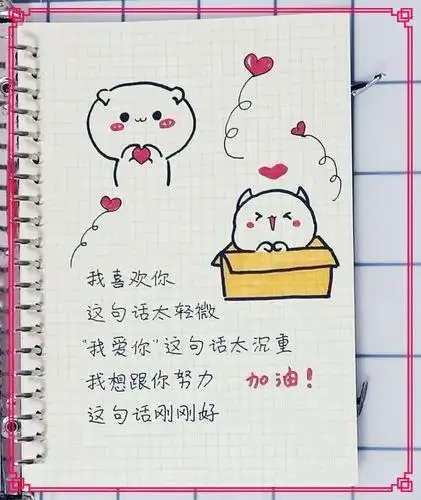 我喜欢你
这句话太轻微
"我爱你"这句话太沉重
我想跟你努力 加油！
这句话刚刚好